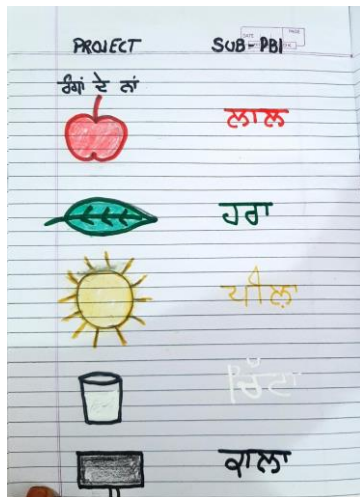 PROJECT SUB-PBI
DATE PAGE
ਰੰਗਾਂ ਦੇ ਨਾਂ
ਲਾਲ
ਹਰਾ
ਪੀਲਾ
ਚਿੱਟਾ
ਕਾਲਾ